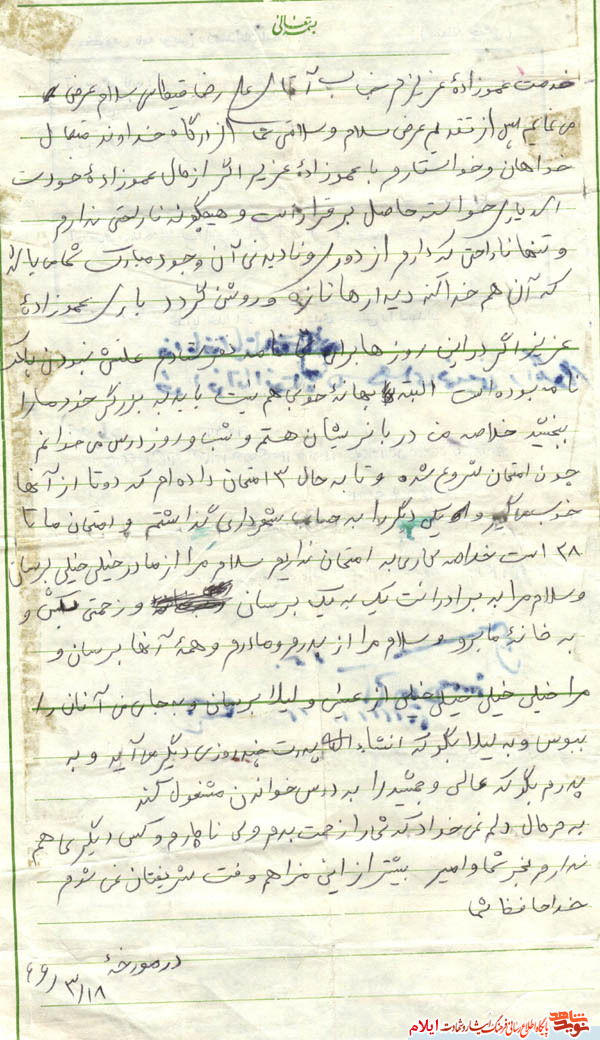 بسمه تعالی
خدمت عموزادهٔ عزیزم جناب آقای علی رضا قیطاسی سلام عرض
می نمایم پس از تقدیم عرض سلام و سلامتی شما از درگاه خداوند متعال
خواهان و خواستارم با عموزادهٔ عزیز اگر از حال عموزادهٔ خودت
خواسته حاصل برقرار است و هیچگونه ناراحتی ندارم
و تنها ناراحتی که دارم از دوری و نادیدنی آن وجود مبارک شما می باشد
که آن هم خدا کند دیدارها تازه و روشن گردد باری عموزادهٔ
عزیز اگر در این روزها برای نامه نفرستادم علتش نبودن
نامه بوده است البته بهانه خوبی هم نیست باید به بزرگی خود ما را
ببخشید خلاصه من در هستم و شب و روز درس می خوانم
چون امتحان شروع شده و تا به حال ۳ امتحان داده ام که دوتا از آنها
خوب و یکی دیگر را به حساب شهرداری گذاشتم و امتحان ما تا
۲۸ است خلاصه کاری به امتحان نداریم سلام مرا از مادر خیلی خیلی برسان
و سلام مرا به برادرانت یک به یک برسان و زحمتی بکش و
به خانهٔ ما برو و سلام مرا از پدرم و مادرم و همهٔ آنها برسان و
مرا خیلی خیلی خیلی خیلی از و لیلا برسان و به جای من آنان را
ببوس و به لیلا بگو که انشاءالله پدرت چند روزی دیگر می آید و به
پدرم بگو که عالی و جمشید را به درس خواندن مشغول کند
به هر حال دلم نمی خواد که شما را زحمت بدم ولی ناچارم و کس دیگری هم
ندارم بجز شما و امیر بیشتر از این مزاهم وقت شریفتان نمی شوم
خداحافظ شما
در مورخهٔ
۶۶/۳/۱۸
نوید شاهد
پایگاه اطلاع رسانی فرهنگ ایثار و شهادت ایلام